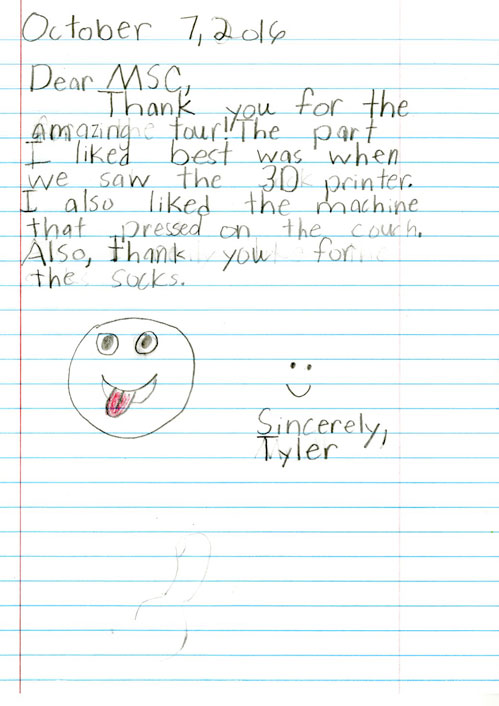 October 7, 2016
Dear MSC,
Thank you for the
amazing tour! The part
I liked best was when
we saw the 3D printer.
I also liked the machine
that pressed on the couch.
Also, thank you for
the socks.
Sincerely,
Tyler